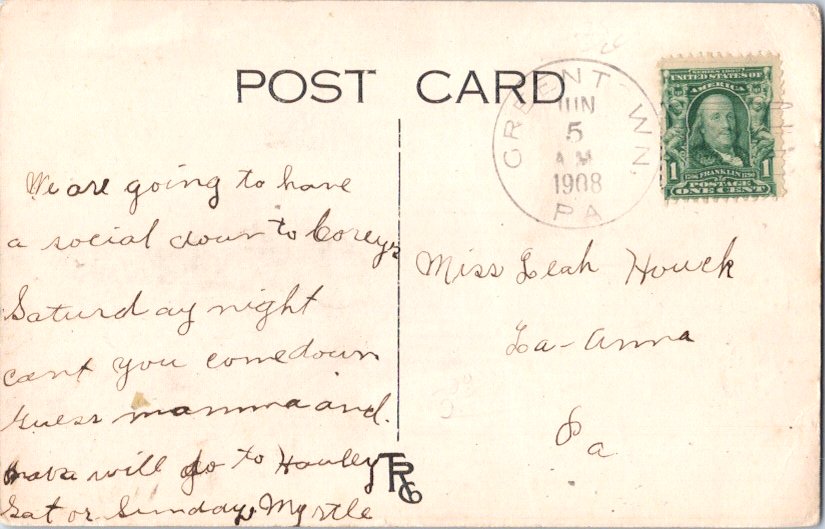 POST CARD
GREENT WN.
JUN
5
A.M.
1908
PA
SERIES 1902
UNITED STATES OF
AMERICA
1 1
1706 FRANKLIN 1790
POSTAGE
ONE CENT
We are going to have
a social down to Coreys
Saturday night
cant you come down
Guess mamma and
will go to Hawley
Sat or Sunday, Myrtle
TRG
Miss Leah Houck
La-Anna
Pa